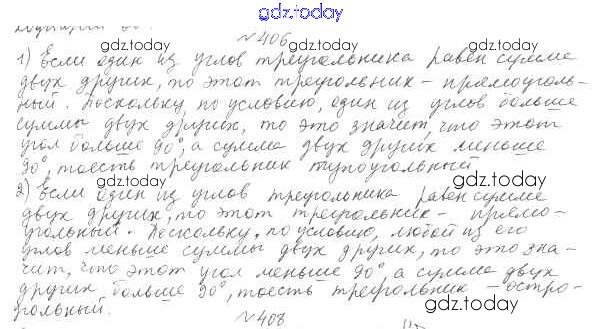 gdz.today
№406
gdz.today gdz.today
1) Если один из углов треугольника равен сумме
двух других, то этот треугольник – прямоуголь-
ный. Поскольку, по условию, один из углов больше
суммы двух других, то это значит, что этот
угол больше 90°, а сумма двух других меньше
90°, тоесть треугольник тупоугольный
gdz.today gdz.today
2) Если один из углов треугольника равен сумме
двух других, то этот треугольник – прямо-
угольный. Поскольку, по условию, любой из его
углов меньше суммы двух других, то это зна-
чит, что этот угол меньше 90°, а сумма двух
других больше 90°, тоесть треугольник – остро-
угольный.
gdz.today gdz.today
№408